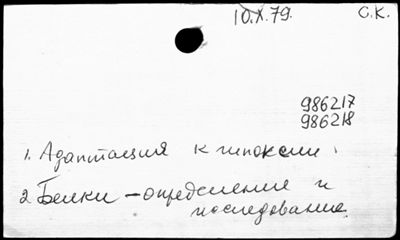 10.X.79. С.К.
986217
986218
1. Адаптация к гипоксии.
2. Белки – определение и
последование.